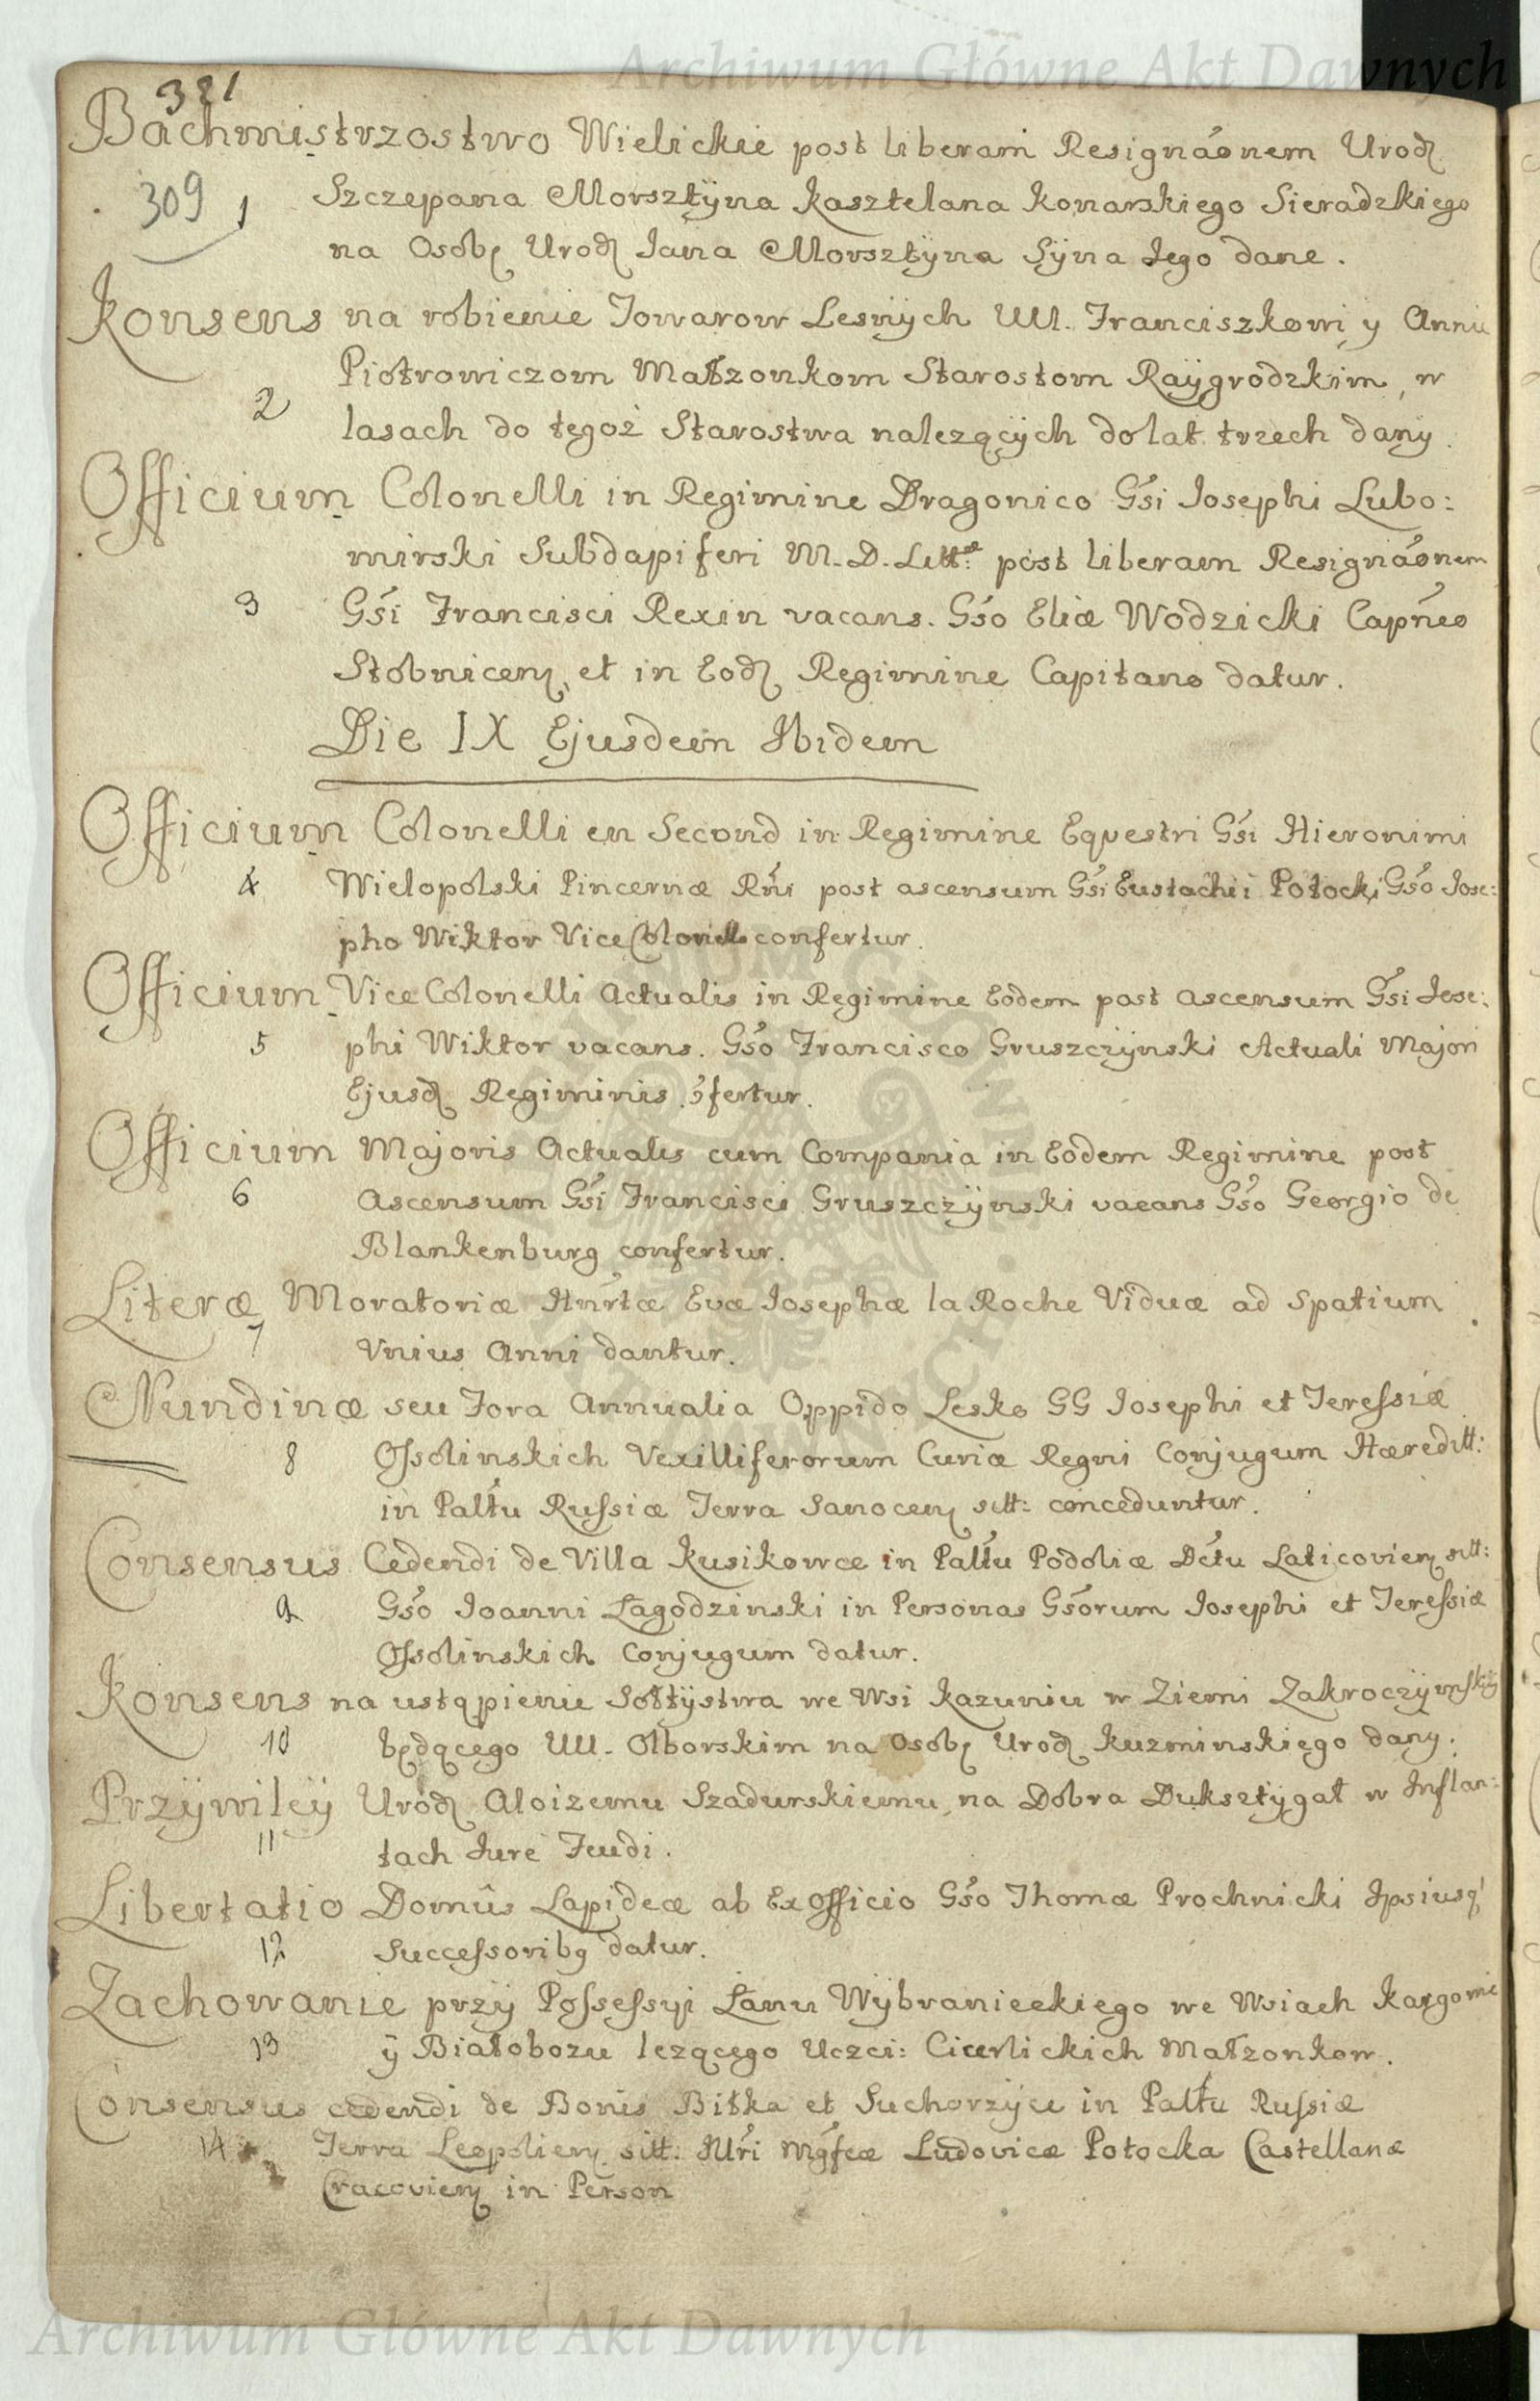 Archiwum Główne Akt Dawnych
321
Bachmistrzostwo Wielickie post liberam Resignáonem Urodz
309 1 Szczepana Morsztyna Kasztelana Konarskiego Sieradzkiego
na Osobę Urodz Jana Morsztÿna Sÿna Jego dane.
Konsens na robienie Towarow Lesnÿch UU. Franciszkowi y Annie
Piotrowiczom Małzonkom Starostom Raÿgrodzkim, w
2 lasach do tegoż Starostwa nalezących do lat trzech dany.
Officium Colonelli in Regimine Dragonico Gsi Josephi Lubo:
mirski Subdapiferi M. D. Litt: post liberam Resignáonem
3 Gsi Francisci Rexin vacans. Gso Eliæ Wodzicki Capneo
Stobnicen, et in Eod Regimine Capitano datur.
Die IX Ejusdem Ibidem
Officium Colonelli en Second in Regimine Eqvestri Gsi Hieronimi
4 Wielopolski Pincernæ Rni post ascensum Gsi Eustachii Potocki Gso Jose:
pho Wiktor Vice Colonello confertur.
Officium Vice Colonelli Actualis in Regimine Eodem post ascensum Gsi Jose:
5 phi Wiktor vacans. Gso Francisco Gruszczÿnski Actuali Majori
Ejusd Regiminis ɔfertur.
Officium Majoris Actualis cum Compania in Eodem Regimine post
6 Ascensum Gsi Francisci Gruszczÿnski vacans Gso Georgio de
Blankenburg confertur.
Literæ Moratoriæ Hnrtæ Evæ Josephæ la Roche Viduæ ad Spatium
7 Vnius Anni dantur.
Nundinæ seu Fora Annualia Oppido Lesko GG Josephi et Teressiæ
8 Ossolinskich Vexilliferorum Curiæ Regni Conjugum Hæreditt:
in Palttu Russiæ Terra Sanocen sitt: conceduntur.
Consensus Cedendi de Villa Kusikowce in Palttu Podoliæ Dctu Laticovien sitt:
9 Gso Joanni Łagodzinski in Personas Gsorum Josephi et Teressiæ
Ossolinskich Conjugum datur.
Konsens na ustąpienie Sołtÿstwa we Wsi Kazuniu w Ziemi Zakroczÿmskiÿ
10 będącego UU. Olborskim na Osobę Urodz Kuzminskiego dany.
Przÿwileÿ Urodz Aloizemu Szadurskiemu, na Dobra Duksztÿgał w Inflan:
11 tach Jure Feudi.
Libertatio Domûs Lapideæ ab Ex Officio Gso Thomæ Prochnicki Ipsiusq
12 Successoribq datur.
Zachowanie przÿ Possessyi Łanu Wÿbranieckiego we Wsiach Kargowie
13 ÿ Białobozu lezącego Uczci: Cierlickich Małzonkow.
Consensus cedendi de Bonis Bitka et Suchorzÿce in Palttu Russiæ
14 Terra Leopolien sitt: Illri Mgfcæ Ludovicæ Potocka Castellanæ
Cracovien in Person
Archiwum Główne Akt Dawnych